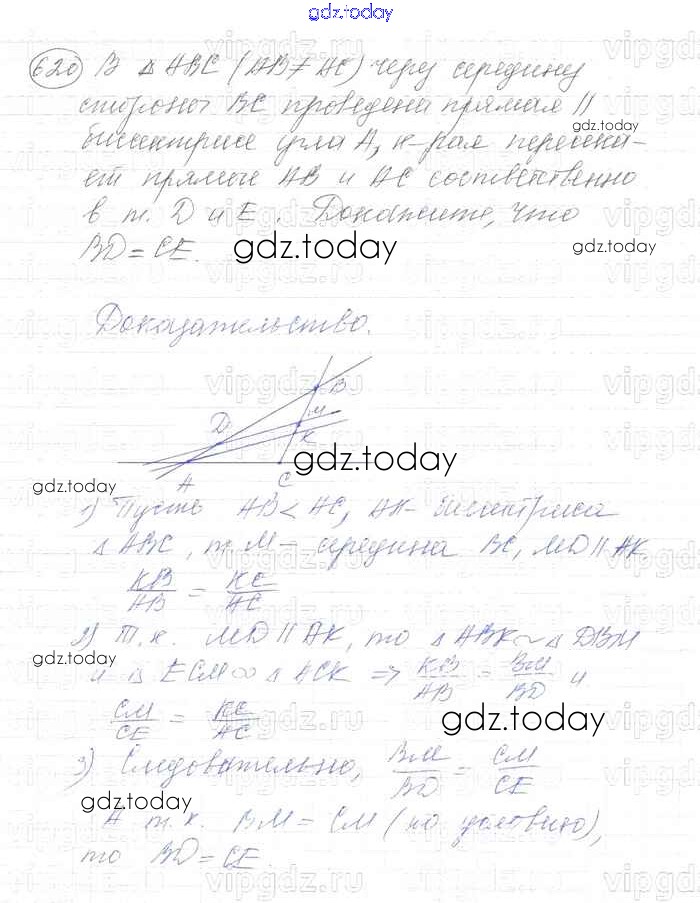 gdz.today
620 В △ ABC (AB ≠ AC) через середину
стороны BC проведена прямая ||
биссектрисе угла A, к-рая пересека-
ет прямые AB и AC соответственно
в т. D и E. Докажите, что
BD = CE.
gdz.today
gdz.today
gdz.today
Доказательство.
B
M
D
K
A
C
gdz.today
gdz.today
1) Пусть AB < AC, AK - биссектриса
△ ABC, т. M - середина BC, MD || AK
KB/AB = KC/AC
2) Т.к. MD || AK, то △ ABK ~ △ DBM
и △ ECM ∞ △ ACK => KB/AB = BM/BD и
CM/CE = KC/AC
gdz.today
gdz.today
3) Следовательно, BM/BD = CM/CE
gdz.today
А т.к. BM = CM (по условию),
то BD = CE.
vipgdz.ru